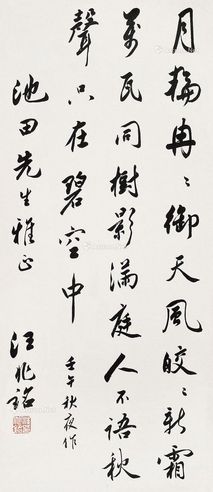 月輪冉〻御天風皎〻新霜
萬瓦同樹影滿庭人不語秋
聲只在碧空中
壬午秋夜作
池田先生雅正
汪兆銘